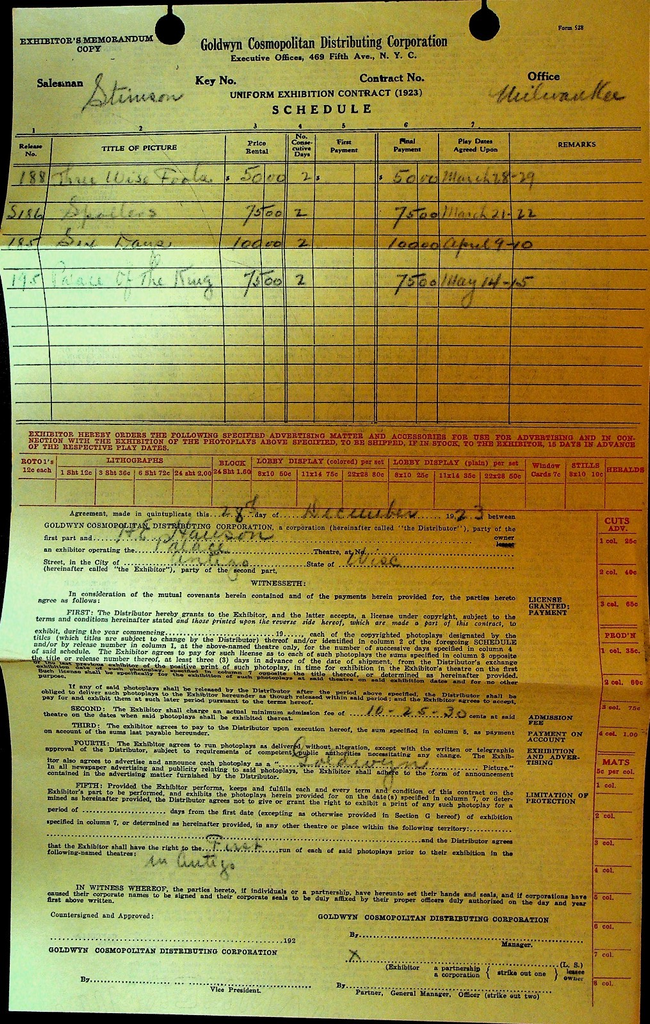 EXHIBITOR'S MEMORANDUM
COPY
Form 528
Goldwyn Cosmopolitan Distributing Corporation
Executive Offices, 469 Fifth Ave., N. Y. C.
Salesman Stimson Key No. Contract No. Office Milwaukee
UNIFORM EXHIBITION CONTRACT (1923)
SCHEDULE
1 2 3 4 5 6 7
Release No. TITLE OF PICTURE Price Rental No. Consecutive Days First Payment Final Payment Play Dates Agreed Upon REMARKS
188 Three Wise Fools $ 50 00 2 $ $ 50 00 March 28-29
S186 Spoilers 75 00 2 75 00 March 21-22
185 Six Days 100 00 2 100 00 April 9-10
195 Palace Of The King 75 00 2 75 00 May 14-15
EXHIBITOR HEREBY ORDERS THE FOLLOWING SPECIFIED ADVERTISING MATTER AND ACCESSORIES FOR USE FOR ADVERTISING AND IN CON-
NECTION WITH THE EXHIBITION OF THE PHOTOPLAYS ABOVE SPECIFIED, TO BE SHIPPED, IF IN STOCK, TO THE EXHIBITOR, 15 DAYS IN ADVANCE
OF THE RESPECTIVE PLAY DATES.
ROTO 1's 12c each LITHOGRAPHS BLOCK LOBBY DISPLAY (colored) per set LOBBY DISPLAY (plain) per set Window Cards 7c STILLS 8x10 10c HERALDS
1 Sht 12c 3 Sht 36c 6 Sht 72c 24 sht 2.00 24 Sht 1.80 8x10 60c 11x14 75c 22x28 60c 8x10 25c 11x14 50c 22x28 50c
Agreement, made in quintuplicate this day of December 1923 between
GOLDWYN COSMOPOLITAN DISTRIBUTING CORPORATION, a corporation (hereinafter called "the Distributor"), party of the
first part and Hanson owner lessee
an exhibitor operating the Palace Theatre, at No.
Street, in the City of Antigo State of Wisc
(hereinafter called "the Exhibitor"), party of the second part.
WITNESSETH:
In consideration of the mutual covenants herein contained and of the payments herein provided for, the parties hereto
agree as follows:
LICENSE GRANTED: PAYMENT
FIRST: The Distributor hereby grants to the Exhibitor, and the latter accepts, a license under copyright, subject to the
terms and conditions hereinafter stated and those printed upon the reverse side hereof, which are made a part of this contract, to
exhibit, during the year commencing 19 each of the copyrighted photoplays designated by the
titles (which titles are subject to change by the Distributor) thereof and/or identified in column 2 of the foregoing SCHEDULE
and/or by release number in column 1, at the above-named theatre only, for the number of successive days specified in column 4
of said schedule. The Exhibitor agrees to pay for such license as to each of such photoplays the sums specified in column 3 opposite
the title or release number thereof, at least three (3) days in advance of the date of shipment, from the Distributor's exchange
purpose.
If any of said photoplays shall be released by the Distributor after the period above specified, the Distributor shall be
obliged to deliver such photoplays to the Exhibitor hereunder as though released within said period and the Exhibitor agrees to accept,
pay for and exhibit them at such later period pursuant to the terms hereof.
SECOND: The Exhibitor shall charge an actual minimum admission fee of 10-25-30 cents at said
theatre on the dates when said photoplays shall be exhibited thereat.
ADMISSION FEE
THIRD: The exhibitor agrees to pay to the Distributor upon execution hereof, the sum specified in column 5, as payment
on account of the sums last payable hereunder.
PAYMENT ON ACCOUNT
FOURTH: The Exhibitor agrees to run photoplays as delivered without alteration, except with the written or telegraphic
approval of the Distributor, subject to requirements of competent public authorities necessitating any change. The Exhib-
itor also agrees to advertise and announce each photoplay as a "Goldwyn Picture."
In all newspaper advertising and publicity relating to said photoplays, the Exhibitor shall adhere to the form of announcement
contained in the advertising matter furnished by the Distributor.
EXHIBITION AND ADVERTISING
FIFTH: Provided the Exhibitor performs, keeps and fulfils each and every term and condition of this contract on the
Exhibitor's part to be performed, and exhibits the photoplays herein provided for on the date(s) specified in column 7, or deter-
mined as hereinafter provided, the Distributor agrees not to give or grant the right to exhibit a print of any such photoplay for a
period of days from the first date (excepting as otherwise provided in Section G hereof) of exhibition
specified in column 7, or determined as hereinafter provided, in any other theatre or place within the following territory:
LIMITATION OF PROTECTION
and the Distributor agrees
that the Exhibitor shall have the right to the First run of each of said photoplays prior to their exhibition in the
following-named theatres: in Antigo
IN WITNESS WHEREOF, the parties hereto, if individuals or a partnership, have hereunto set their hands and seals, and if corporations have
caused their corporate names to be signed and their corporate seals to be duly affixed by their proper officers duly authorized on the day and year
first above written.
Countersigned and Approved: GOLDWYN COSMOPOLITAN DISTRIBUTING CORPORATION
192 By Manager.
GOLDWYN COSMOPOLITAN DISTRIBUTING CORPORATION X (L. S.)
(Exhibitor a partnership a corporation { strike out one } lessee owner
By Vice President. By Partner, General Manager, Officer (strike out two)
CUTS
ADV.
1 col. 25c
2 col. 40c
3 col. 65c
PROD'N
1 col. 35c.
2 col. 50c
3 col. 75c
4 col. 1.00
MATS
5c per col.
1 col.
2 col.
3 col.
4 col.
5 col.
6 col.
7 col.
8 col.